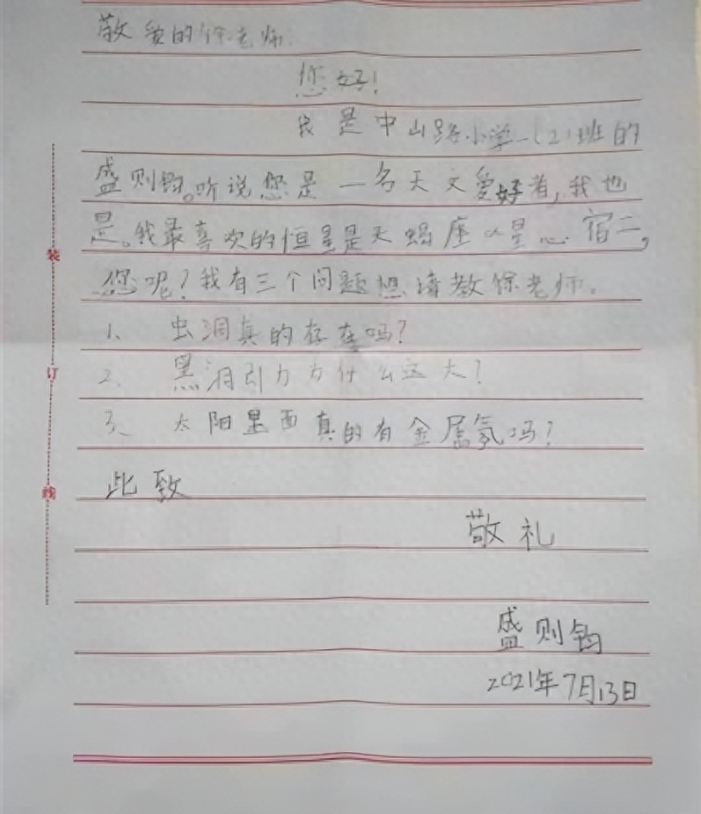 敬爱的徐老师:
您好!
我是中山路小学一(2)班的
盛则钧。听说您是一名天文爱好者,我也
是。我最喜欢的恒星是天蝎座α星心宿二,
您呢?我有三个问题想请教徐老师。
1、虫洞真的存在吗?
2、黑洞引力为什么这大?
3、太阳里面真的有金属氢吗?
此致
敬礼
盛则钧
2021年7月13日
装
订
线